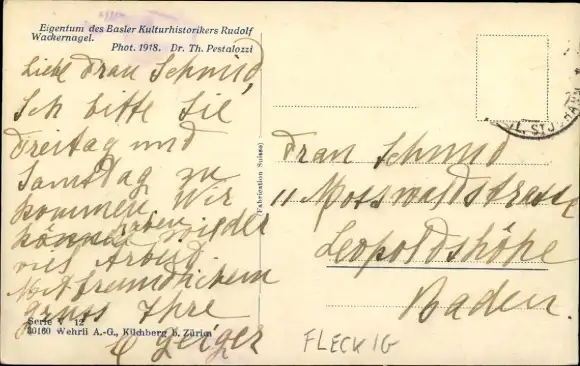 Eigentum des Basler Kulturhistorikers Rudolf
Wackernagel.
Phot. 1918. Dr. Th. Pestalozzi
Liebe Frau Schmid,
Ich bitte Sie
Freitag und
Samstag zu
kommen Wir
haben
können wieder
viel Arbeit.
Mit freundlichem
Gruss Ihre
E Geiger
Serie 12
30160 Wehrli A.-G., Kilchberg b. Zürich
(Fabrication Suisse)
Frau Schmid
11 Mooswaldstrasse
Leopoldshöhe
Baden.
FLECKIG